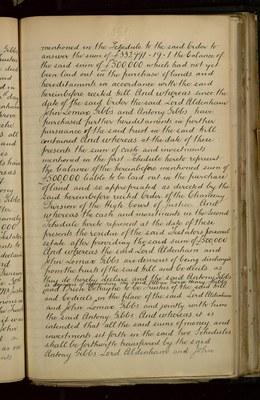 mentioned in the Schedule to the said Order to
answer the sum of £332,991-19-1 the balance of
the said sum of £500000 which had not yet
been laid out in the purchase of lands and
hereditaments in accordance with the said
hereinbefore recited Will And whereas since the
date of the said Order the said Lord Aldenham
John Lomax Gibbs and Antony Gibbs have
purchased further hereditaments in further
pursuance of the said trust in the said Will
contained And whereas at the date of these
presents the sum of cash and investments
mentioned in the first Schedule hereto represent
the balance of the hereinbefore mentioned sum of
£500000 liable to be laid out in the purchase
of land and so appropriated as directed by the
said hereinbefore recited Order of the Chancery
Division of the High Court of Justice And
whereas the cash and investments in the Second
Schedule hereto represent at the date of these
presents the residue of the said Testators personal
estate after providing the said sum of £500000
And whereas the said Lord Aldenham and
John Lomax Gibbs are desirous of being discharged
from the trusts of the said Will and Codicils as
they do hereby declare and the said Antony Gibbs
is desirous of appointing the said
and to be trustees of the said Will
and Codicils in the place of the said Lord Aldenham
and John Lomax Gibbs and jointly with him
the said Antony Gibbs And whereas it is
intended that all the said sums of money and
investments set forth in the said two Schedules
shall be forthwith transferred by the said
Antony Gibbs Lord Aldenham and John